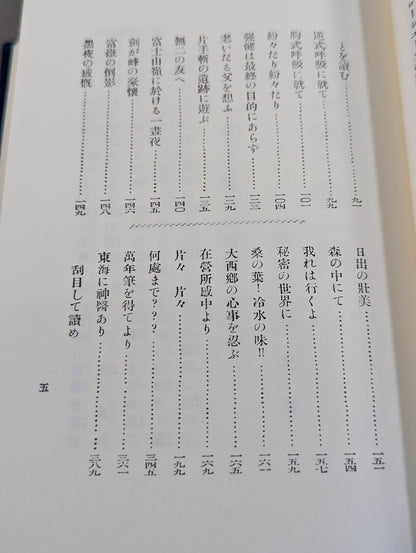 とを讀む……九一
逆式呼吸に就て……九九
胸式呼吸に就て……一〇一
紛々たり紛々たり……一〇四
强健は最終の目的にあらず……一二三
老いたる父を想ふ……一二九
片手斬の遺跡に遊ぶ……一三五
無二の友へ……一四〇
富士山嶺に於ける一晝夜……一四五
劍が峰の豪懷……一四六
富嶽の倒影……一四八
黑夜の感慨……一四九
日出の壯美……一五一
森の中にて……一五四
我れは行くよ……一五七
秘密の世界に……一五九
桑の葉!冷水の味!!……一六一
大西鄕の心事を忍ぶ……一六五
在營所感中より……一六九
片々 片々……一九九
何處まで???……三四五
萬年筆を得てより……三六一
東海に神醫あり……三八九
刮目して讀め
五